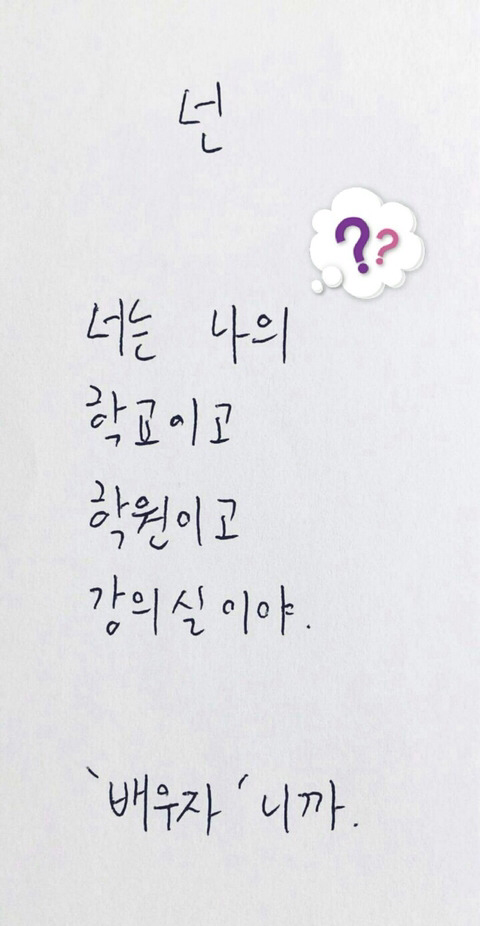 넌
??
너는 나의
학교이고
학원이고
강의실이야.
'배우자'니까.